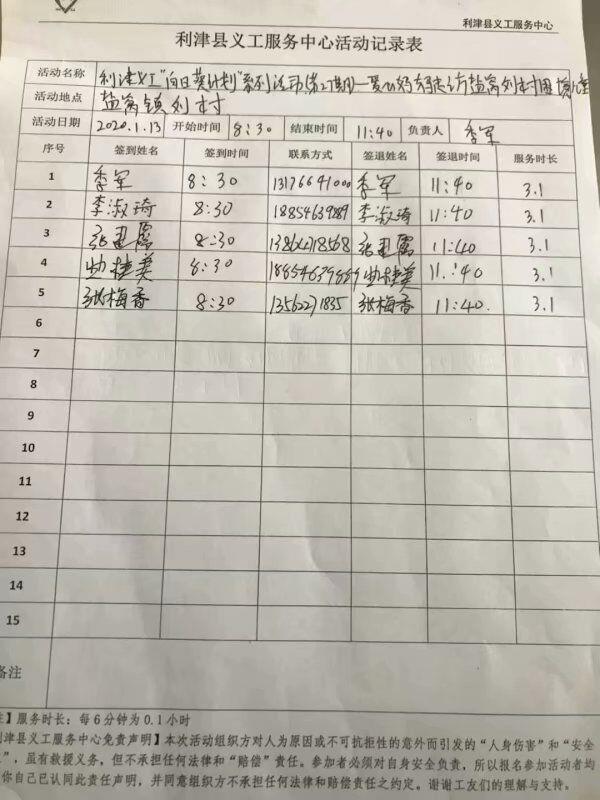 利津县义工服务中心
利津县义工服务中心活动记录表
活动名称 利津义工"向日葵计划"系列活动(第27期)—爱心妈妈走访盐窝刘村困境儿童
活动地点 盐窝镇刘村
活动日期 2020.1.13 开始时间 8:30 结束时间 11:40 负责人 季军
序号 签到姓名 签到时间 联系方式 签退姓名 签退时间 服务时长
1 季军 8:30 13176641000 季军 11:40 3.1
2 李淑琦 8:30 李淑琦 11:40 3.1
3 8:30 11:40 3.1
4 8:30 11:40 3.1
5 张梅香 8:30 13562271835 张梅香 11:40. 3.1
6
7
8
9
10
11
12
13
14
15
备注
注】服务时长：每6分钟为0.1小时
利津县义工服务中心免责声明】本次活动组织方对人为原因或不可抗拒性的意外而引发的“人身伤害”和“安全
”，虽有救援义务，但不承担任何法律和“赔偿”责任。参加者必须对自身安全负责，所以报名参加活动者均
你自己已认同此责任声明，并同意组织方不承担任何法律和赔偿责任之约定。谢谢工友们的理解与支持。